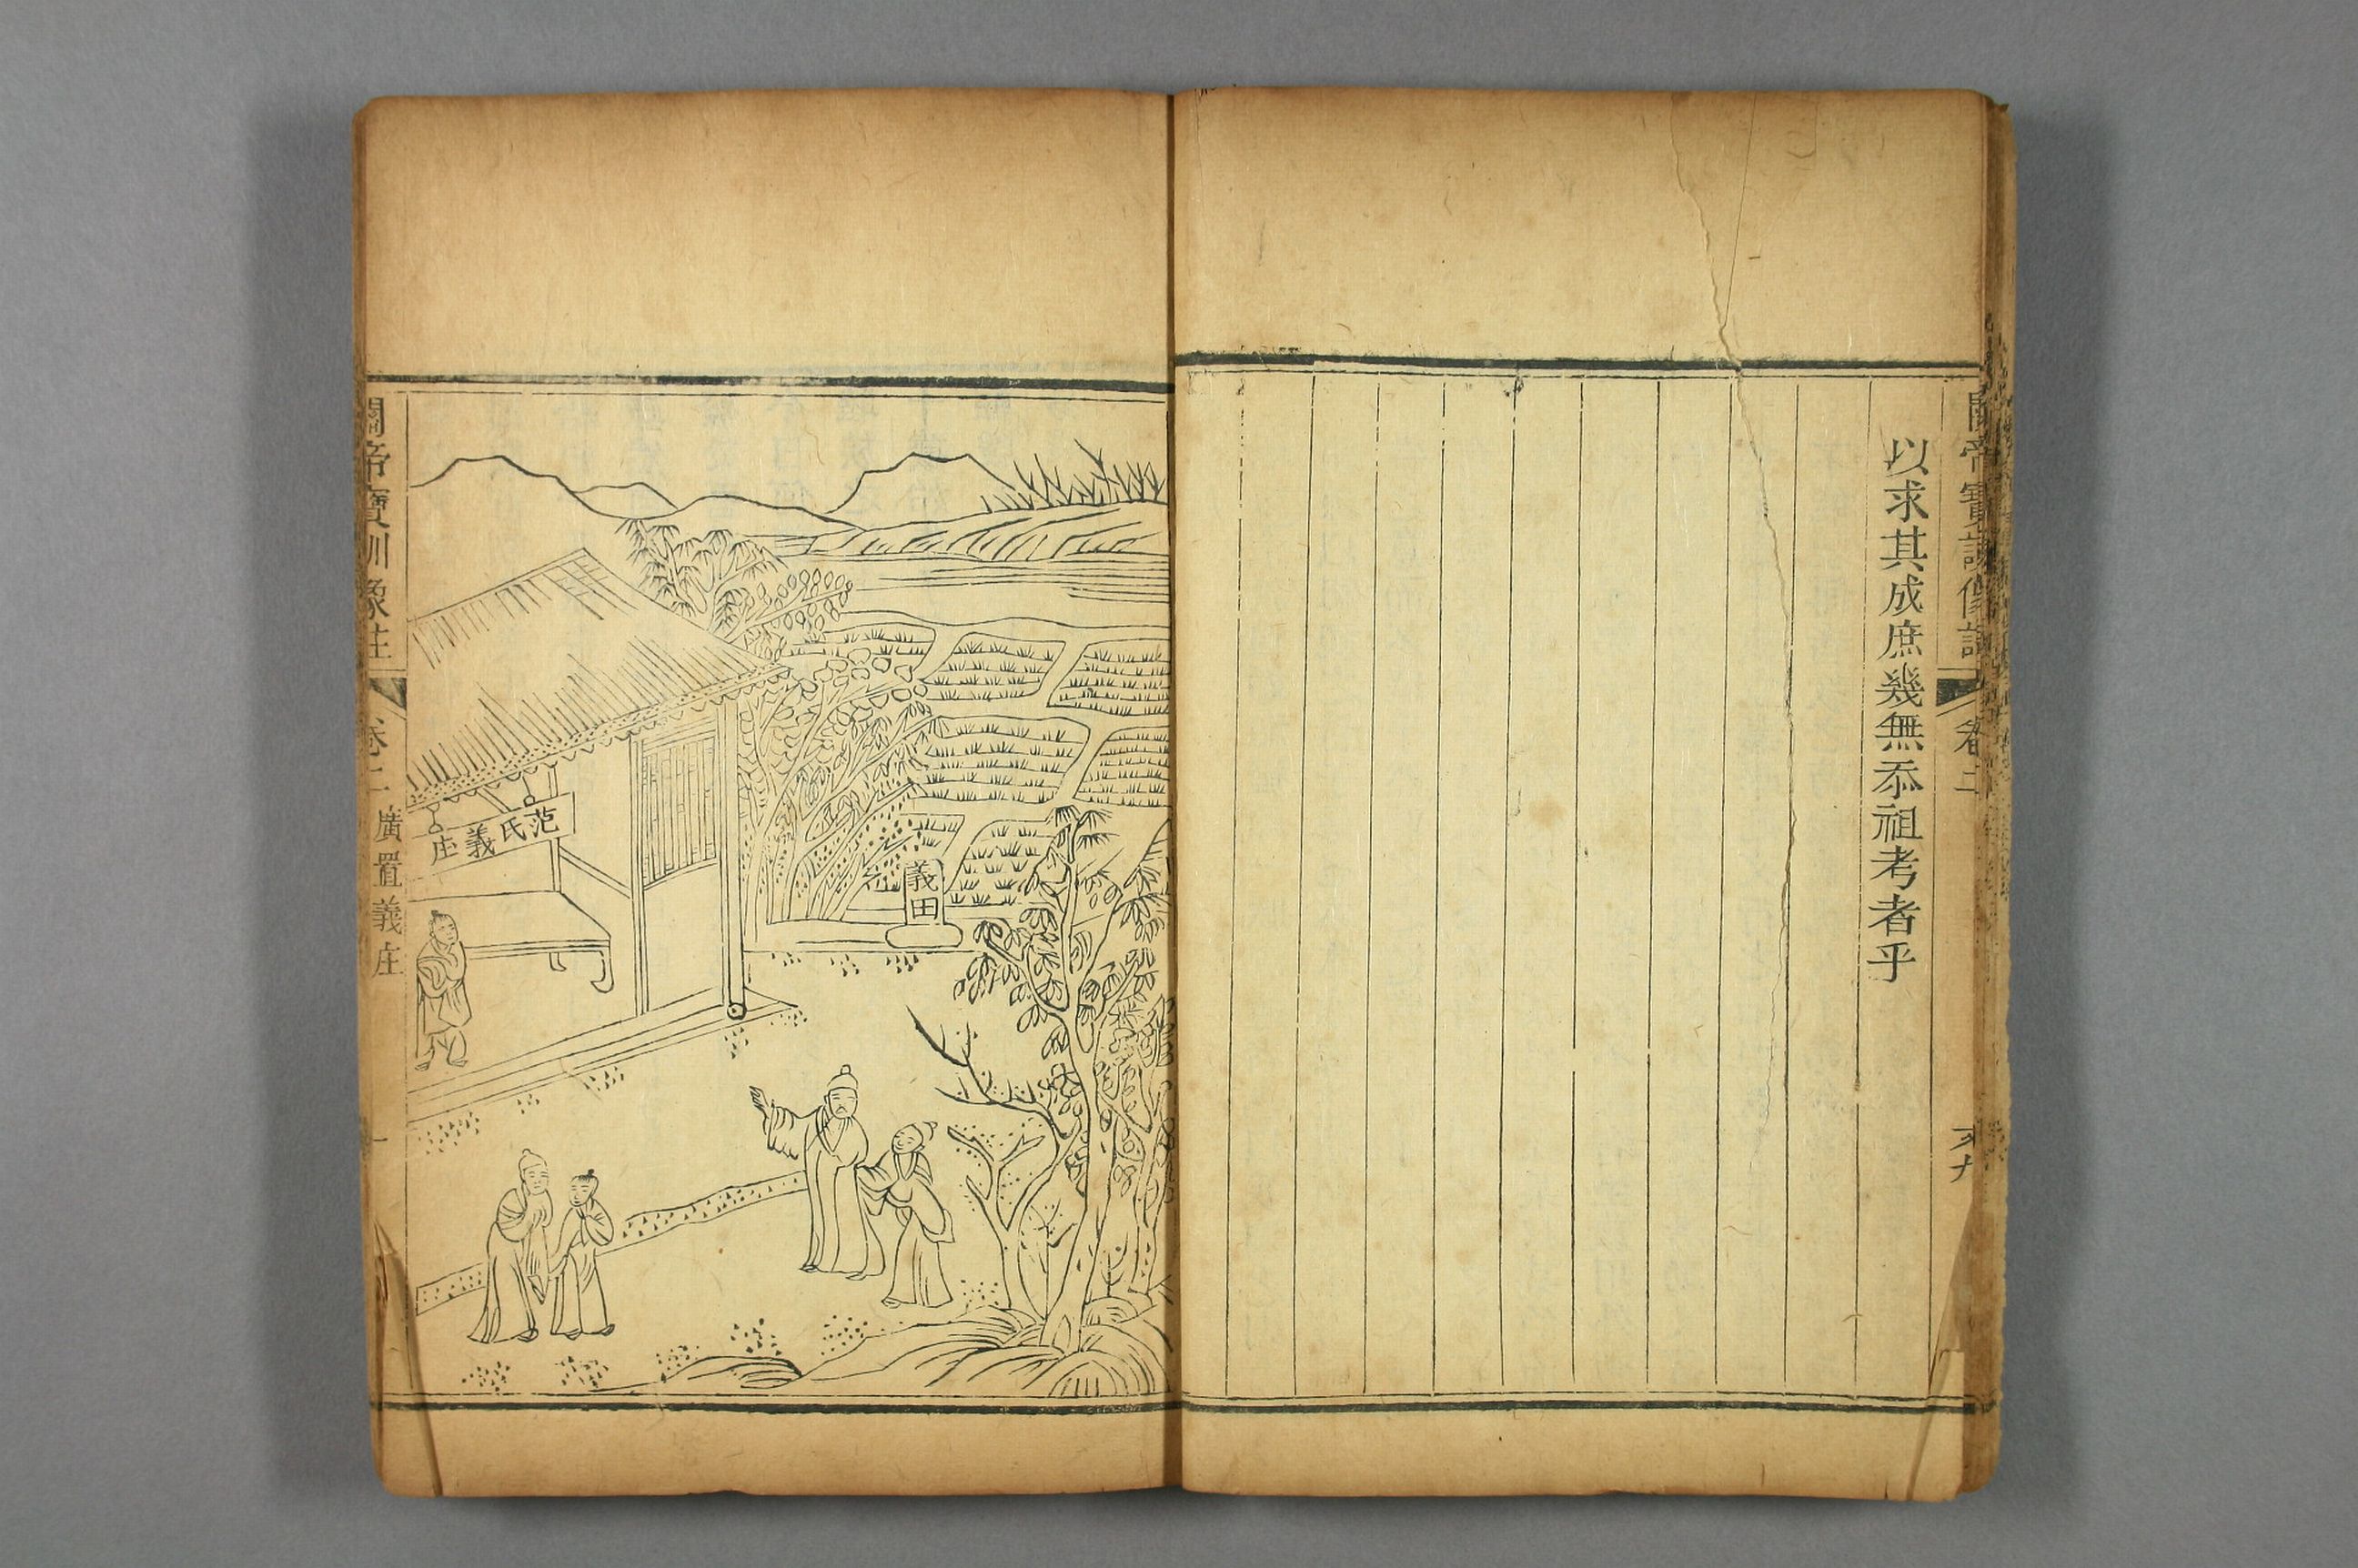 關帝寶訓像註
卷二
以求其成庶幾無忝祖考者乎
義田
范氏義庄
關帝寶訓像註
卷二
廣置義庄